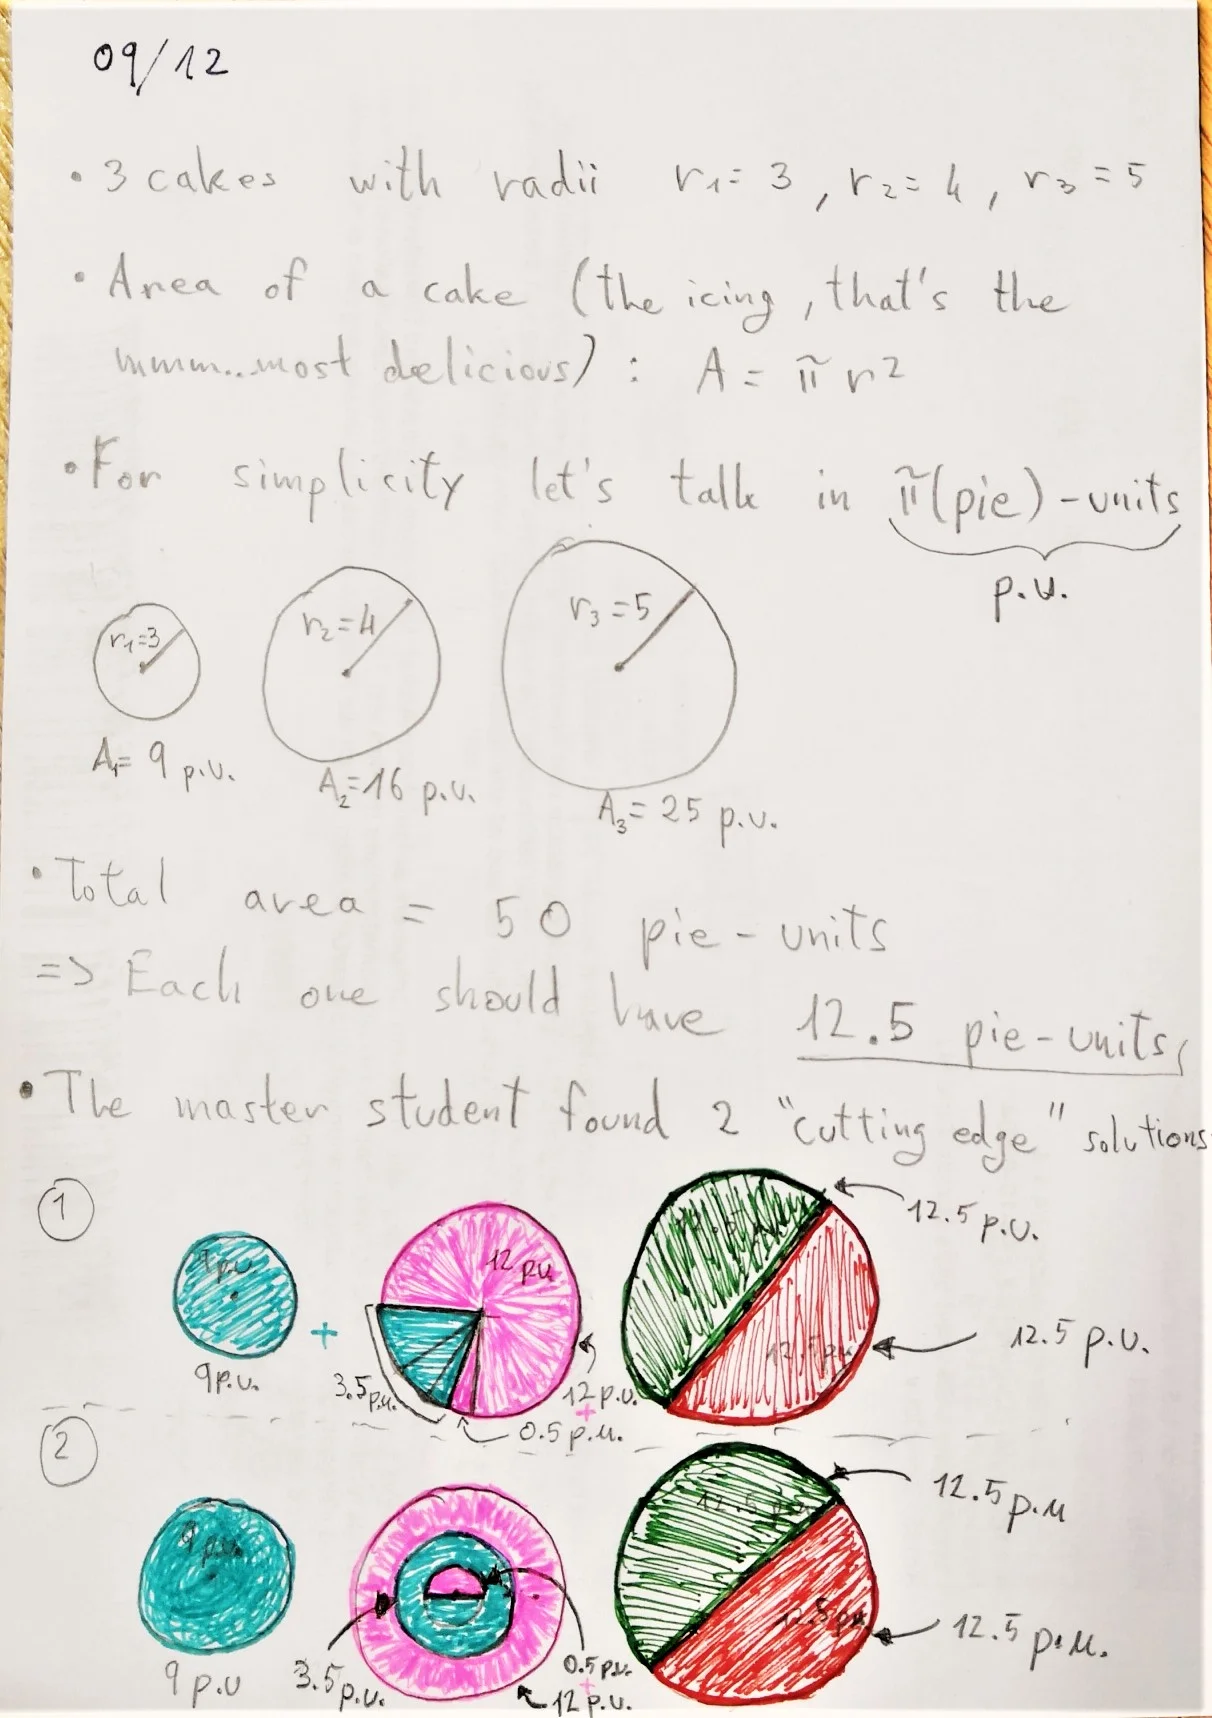 09/12
• 3 cakes with radii r₁= 3, r₂= 4, r₃ = 5
• Area of a cake (the icing, that's the
mmm..most delicious) : A = π r²
• For simplicity let's talk in π(pie)-units
p.u.
r₁=3
r₂=4
r₃=5
A₁= 9 p.u.
A₂=16 p.u.
A₃= 25 p.u.
• Total area = 50 pie-units
=> Each one should have 12.5 pie-units
• The master student found 2 "cutting edge" solutions
1
9 p.u.
9 p.u.
+
12 p.u
3.5 p.u.
12 p.u.
+
0.5 p.u.
12.5 p.u.
12.5 p.u.
12.5 p.u.
2
9 p.u
3.5 p.u.
0.5 p.u.
+
12 p.u.
12.5 p.u
12.5 p.u
12.5 p.u.